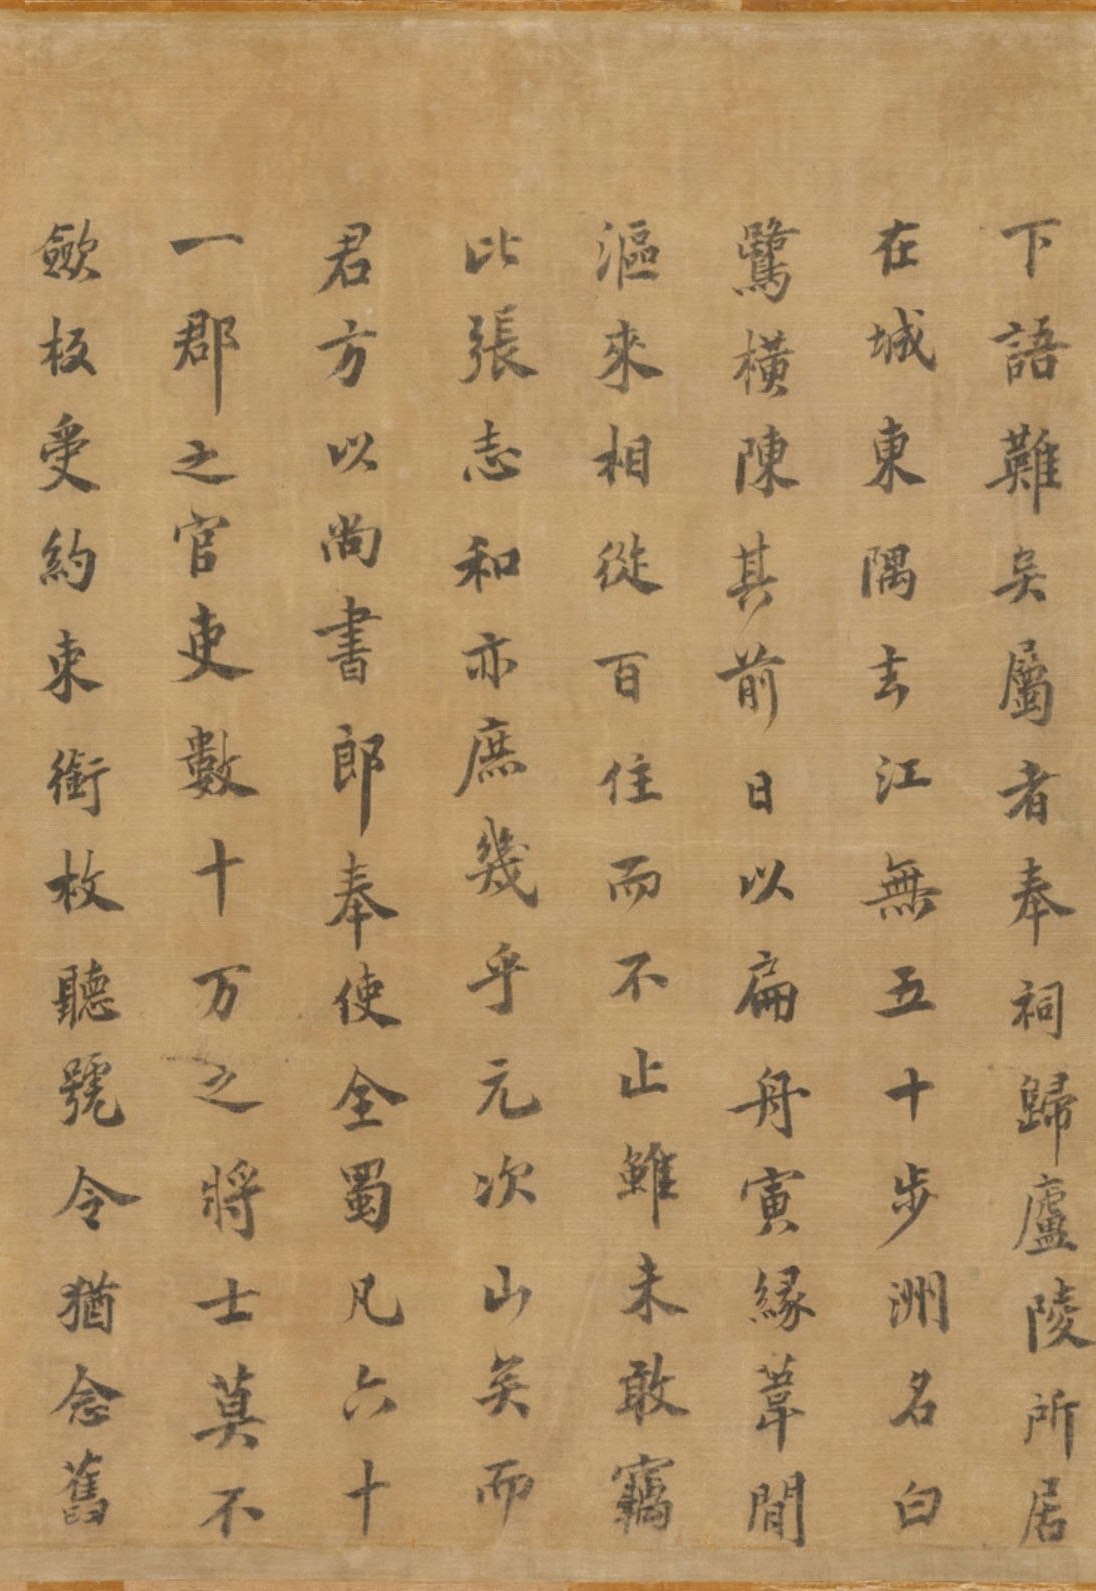 下語難矣屬者奉祠歸廬陵所居
在城東隅去江無五十步洲名白
鷺橫陳其前日以扁舟寅緣葦間
漚來相從百住而不止雖未敢竊
比張志和亦庶幾乎元次山矣而
君方以尚書郎奉使全蜀凡六十
一郡之官吏數十万之將士莫不
斂板受約束銜枚聽號令猶念舊